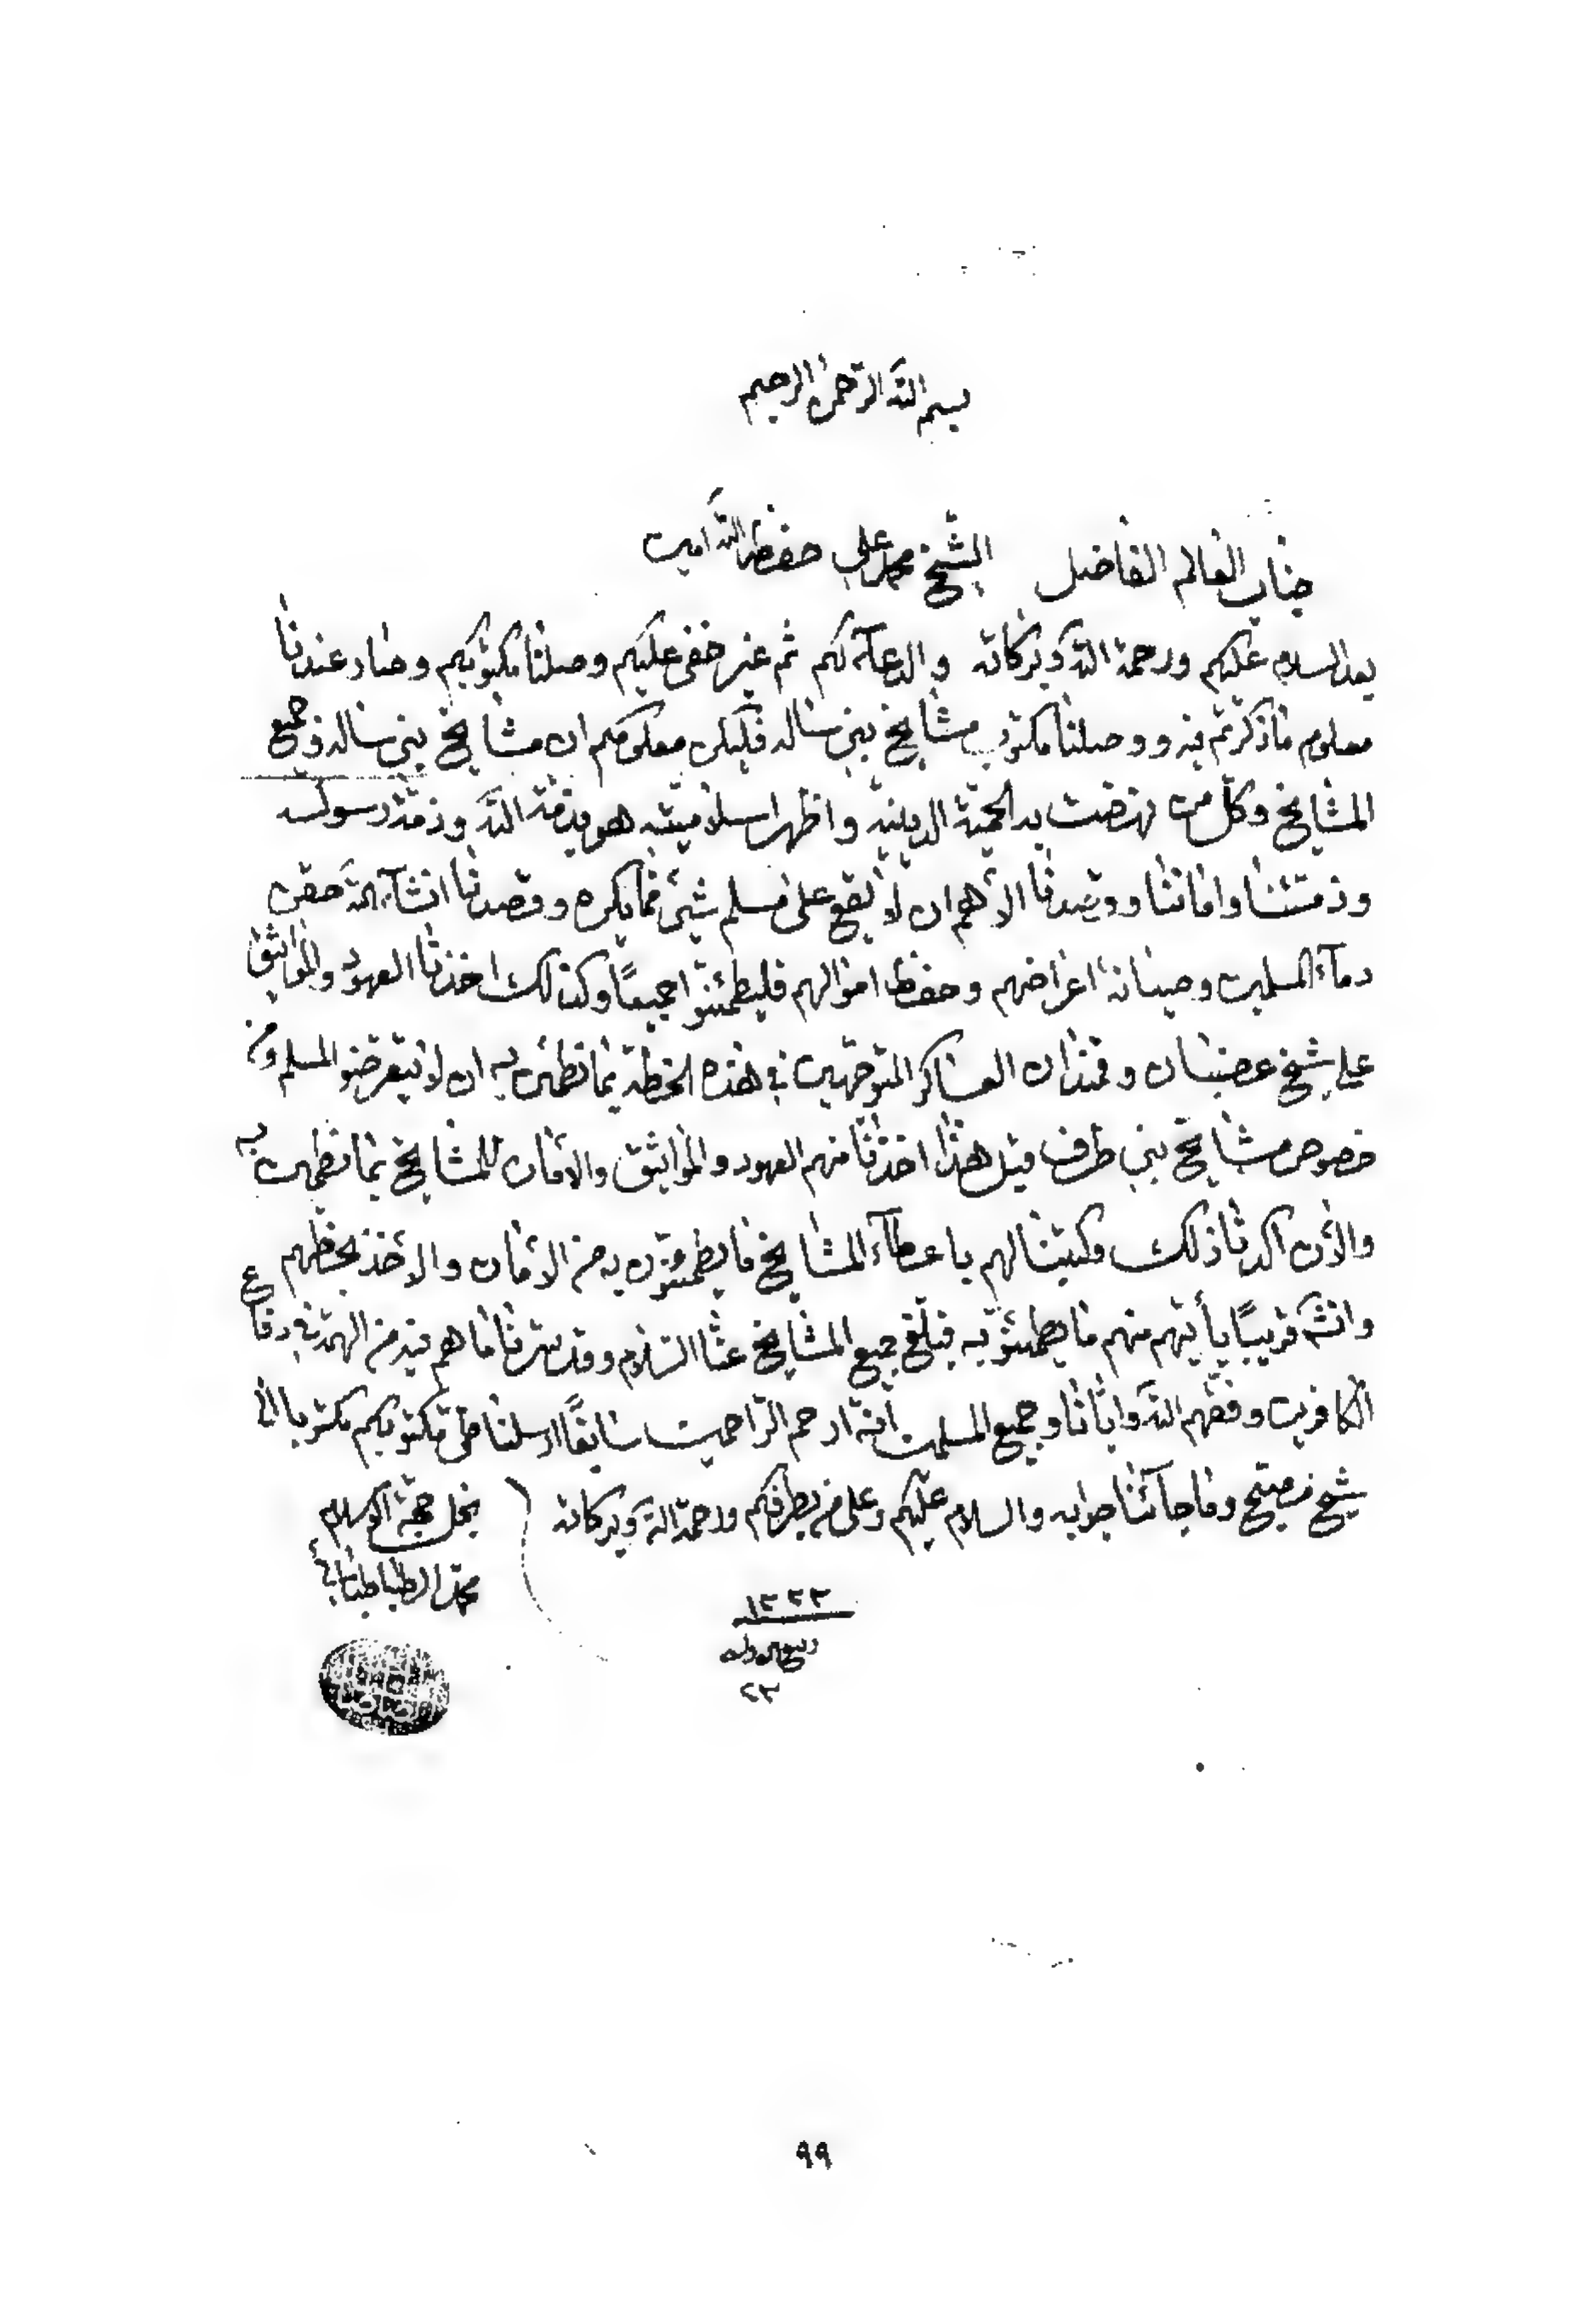 بسم الله الرحمن الرحيم
جناب العالم الفاضل الشيخ محمد علي حفظه الله امين
بعد السلام عليكم ورحمة الله وبركاته والدعآء لكم ثم غير خفى عليكم وصلنا مكتوبكم وصار عندنا
معلوم ما ذكرتم فيه ووصلنا مكتوب مشايخ بنى ساله فليكن معلومكم ان مشايخ بنى ساله وجميع
المشايخ وكل من نهضت به الحمية الدينية واظهر اسلاميته هو بذمة الله وذمة رسوله
وذمتنا واماننا وقصدنا الأهم ان لا يقع على مسلم شيئ مما يكره وقصدنا انشآء الله حقن
دمآء المسلمين وصيانة اعراضهم وحفظ اموالهم فليطمئنوا جميعاً وكذالك اخذنا العهود والمواثيق
على شيخ غضبان وقمندان العساكر المتوجهين في هذه الخطة بما نطمئن به ان لا يتعرضوا لمسلم ومن
خصوص مشايخ بني طرف قبل هذا اخذنا منهم العهود والمواثيق والامان للمشايخ بما نطمئن به
والأن اكدنا ذلك وكتبنا لهم باعطآء المشايخ ما يطمئنون به من الأمان والاخذ بحظهم
وانشاءالله قريباً يأتيهم منهم ما يطمئنوا به فبلغ جميع المشايخ عنا السلام وقد سرنا ما هم فيه من الهمة في دفاع
الكافرين وفقهم الله وايانا وجميع المسلمين انه ارحم الراحمين سابقاً ارسلنا طي مكتوبكم مكتوبا الى
شيخ مصبح وما جآئنا جوابه والسلام عليكم وعلى من بطرفكم ورحمة الله وبركاته
نجل حجة الاسلام
محمد الطباطبائي
١٣٣٣
ربيع
٢٣
٩٩